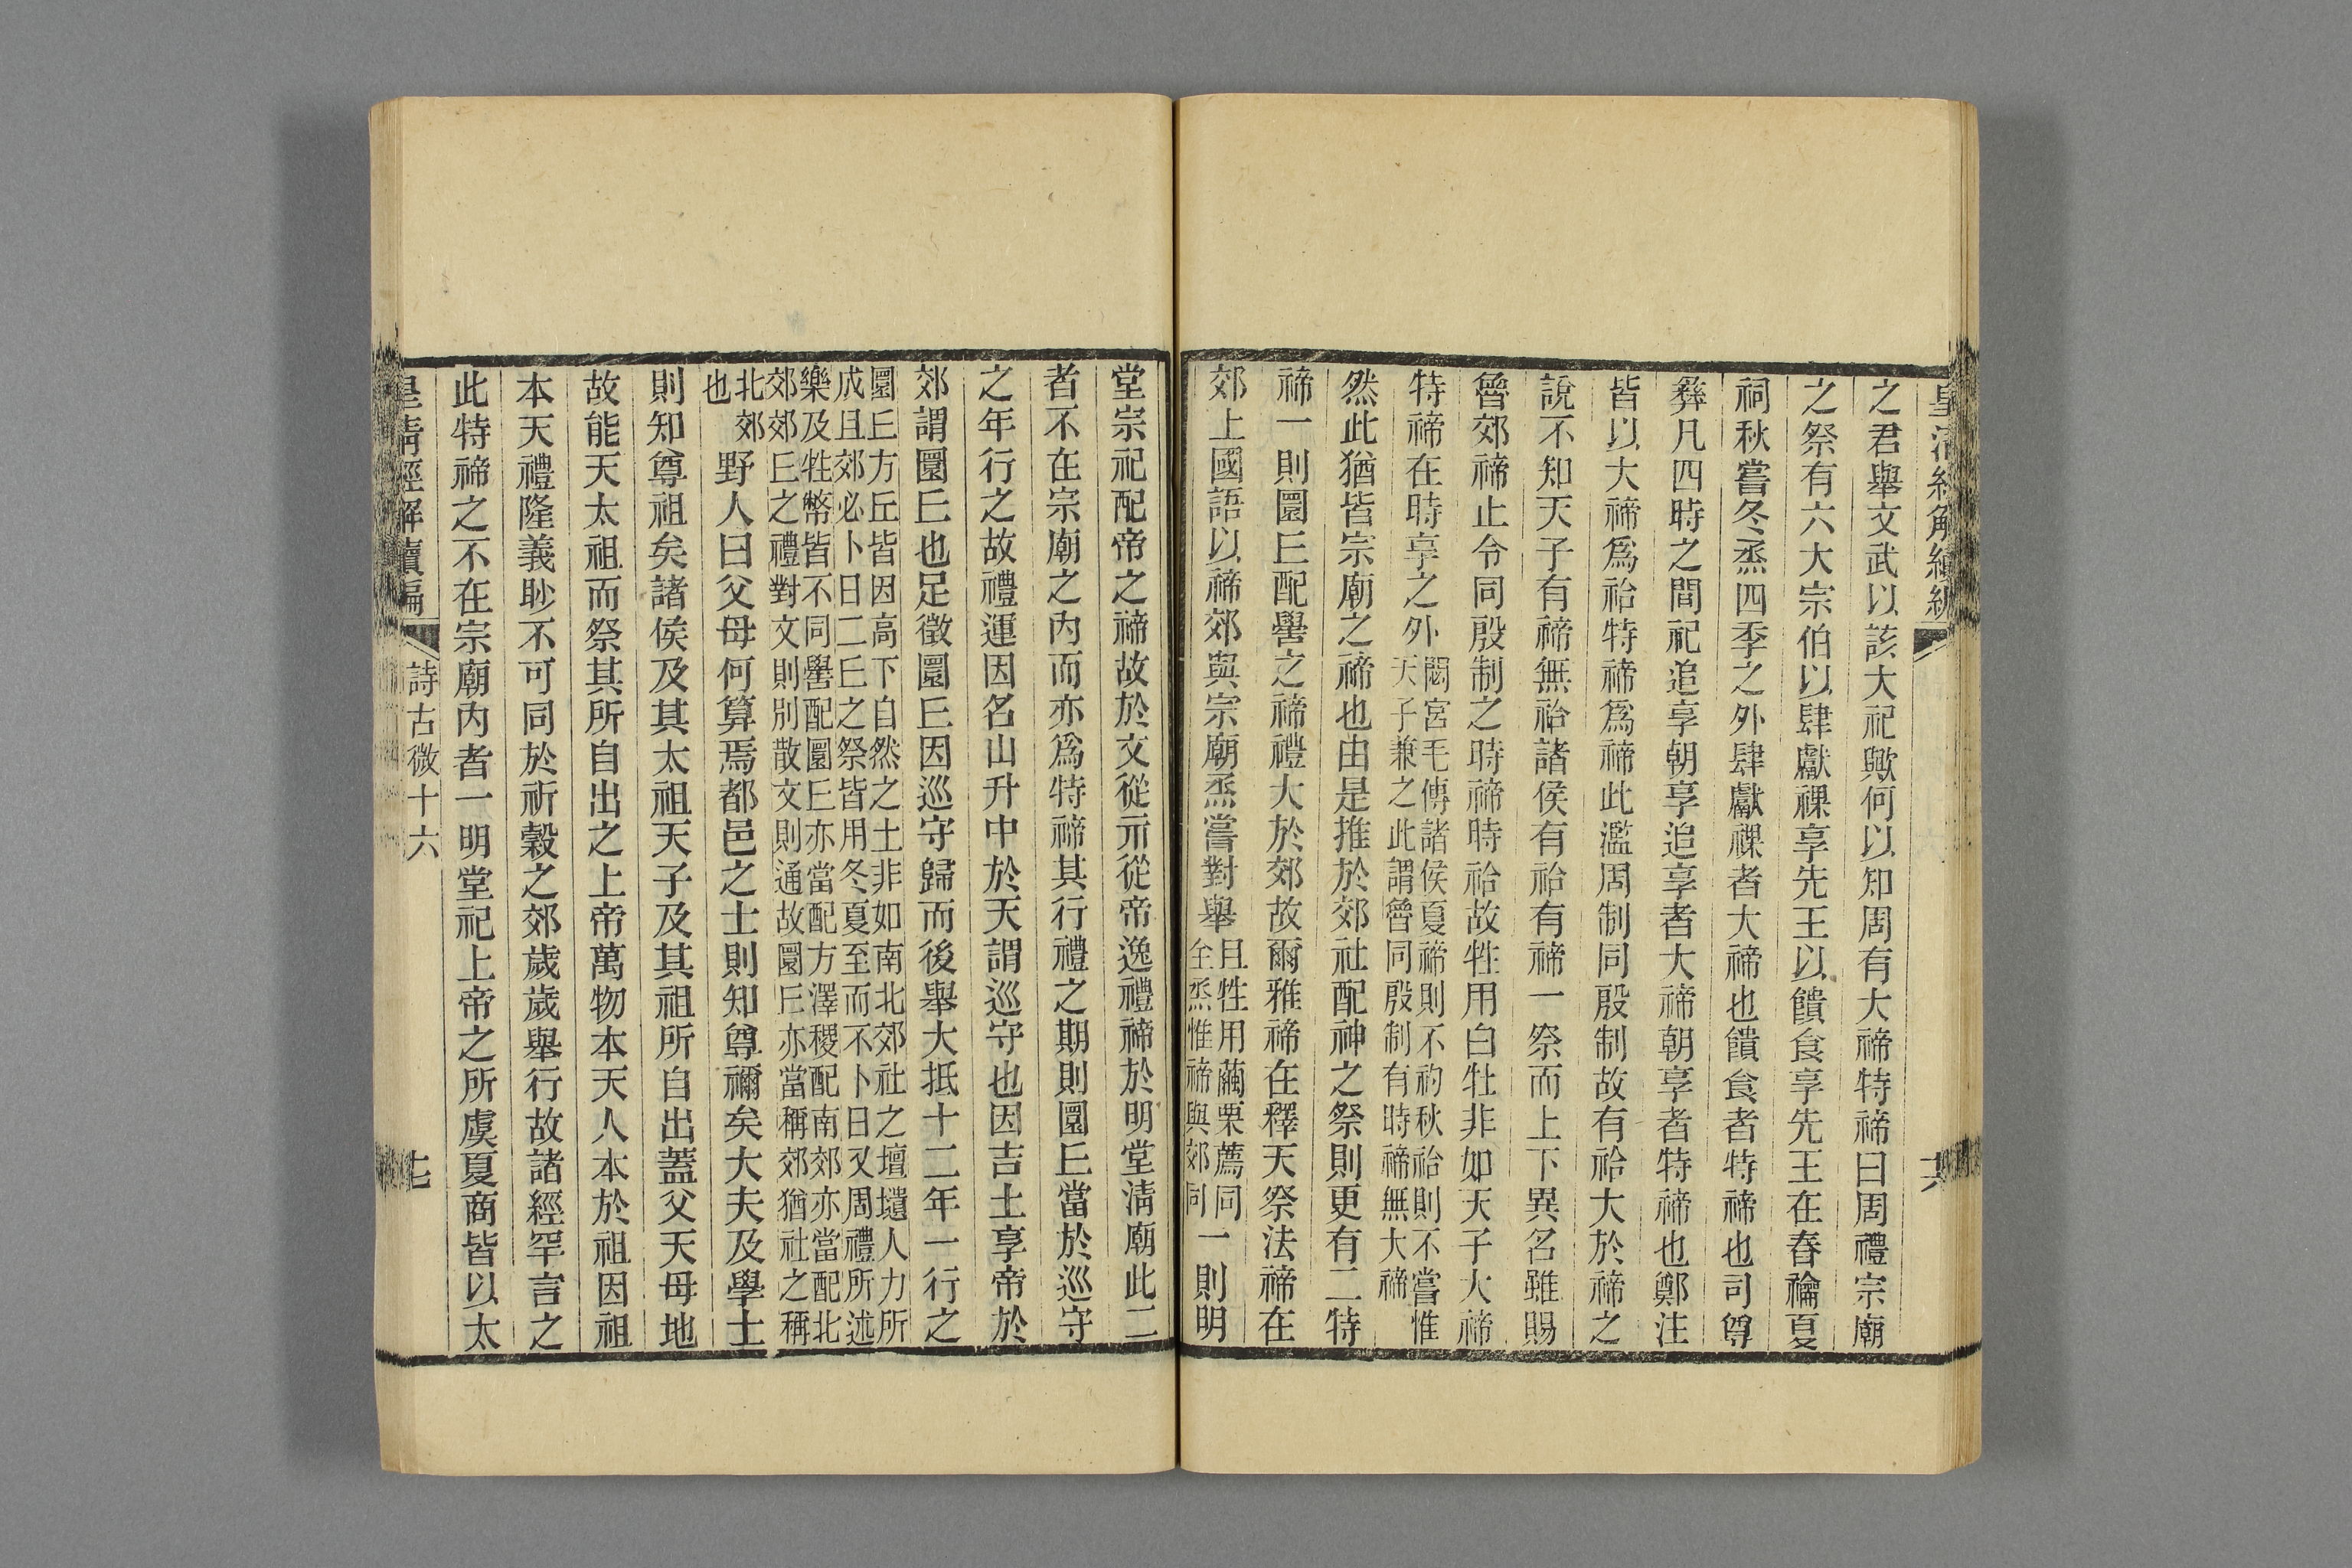 皇清經解續編
六
之君舉文武以該大祀歟何以知周有大禘特禘曰周禮宗廟
之祭有六大宗伯以肆獻祼享先王以饋食享先王在春禴夏
祠秋嘗冬烝四季之外肆獻祼者大禘也饋食者特禘也司尊
彝凡四時之間祀追享朝享追享者大禘朝享者特禘也鄭注
皆以大禘爲祫特禘爲禘此濫周制同殷制故有祫大於禘之
說不知天子有禘無祫諸侯有祫有禘一祭而上下異名雖賜
魯郊禘止令同殷制之時禘時祫故牲用白牡非如天子大禘
特禘在時享之外
閟宮毛傳諸侯夏禘則不礿秋祫則不嘗惟
天子兼之此謂魯同殷制有時禘無大禘
然此猶皆宗廟之禘也由是推於郊社配神之祭則更有二特
禘一則圜𠀌配嚳之禘禮大於郊故爾雅禘在釋天祭法禘在
郊上國語以禘郊與宗廟烝嘗對舉
且牲用繭栗薦同
全烝惟禘與郊同
一則明
堂宗祀配帝之禘故於文從示從帝逸禮禘於明堂淸廟此二
者不在宗廟之內而亦爲特禘其行禮之期則圜𠀌當於巡守
之年行之故禮運因名山升中於天謂巡守也因吉土享帝於
郊謂圜𠀌也足徵圜𠀌因巡守歸而後舉大抵十二年一行之
圜𠀌方丘皆因高下自然之土非如南北郊社之壇壝人力所
成且郊必卜日二𠀌之祭皆用冬夏至而不卜日又周禮所述
樂及牲幣皆不同嚳配圜𠀌亦當配方澤稷配南郊亦當配北
郊郊𠀌之禮對文則別散文則通故圜𠀌亦當稱郊猶社之稱
北郊
也
野人曰父母何算焉都邑之士則知尊禰矣大夫及學士
則知尊祖矣諸侯及其太祖天子及其祖所自出蓋父天母地
故能天太祖而祭其所自出之上帝萬物本天人本於祖因祖
本天禮隆義眇不可同於祈穀之郊歲歲舉行故諸經罕言之
此特禘之不在宗廟內者一明堂祀上帝之所虞夏商皆以太
皇清經解續編
詩古微十六
七